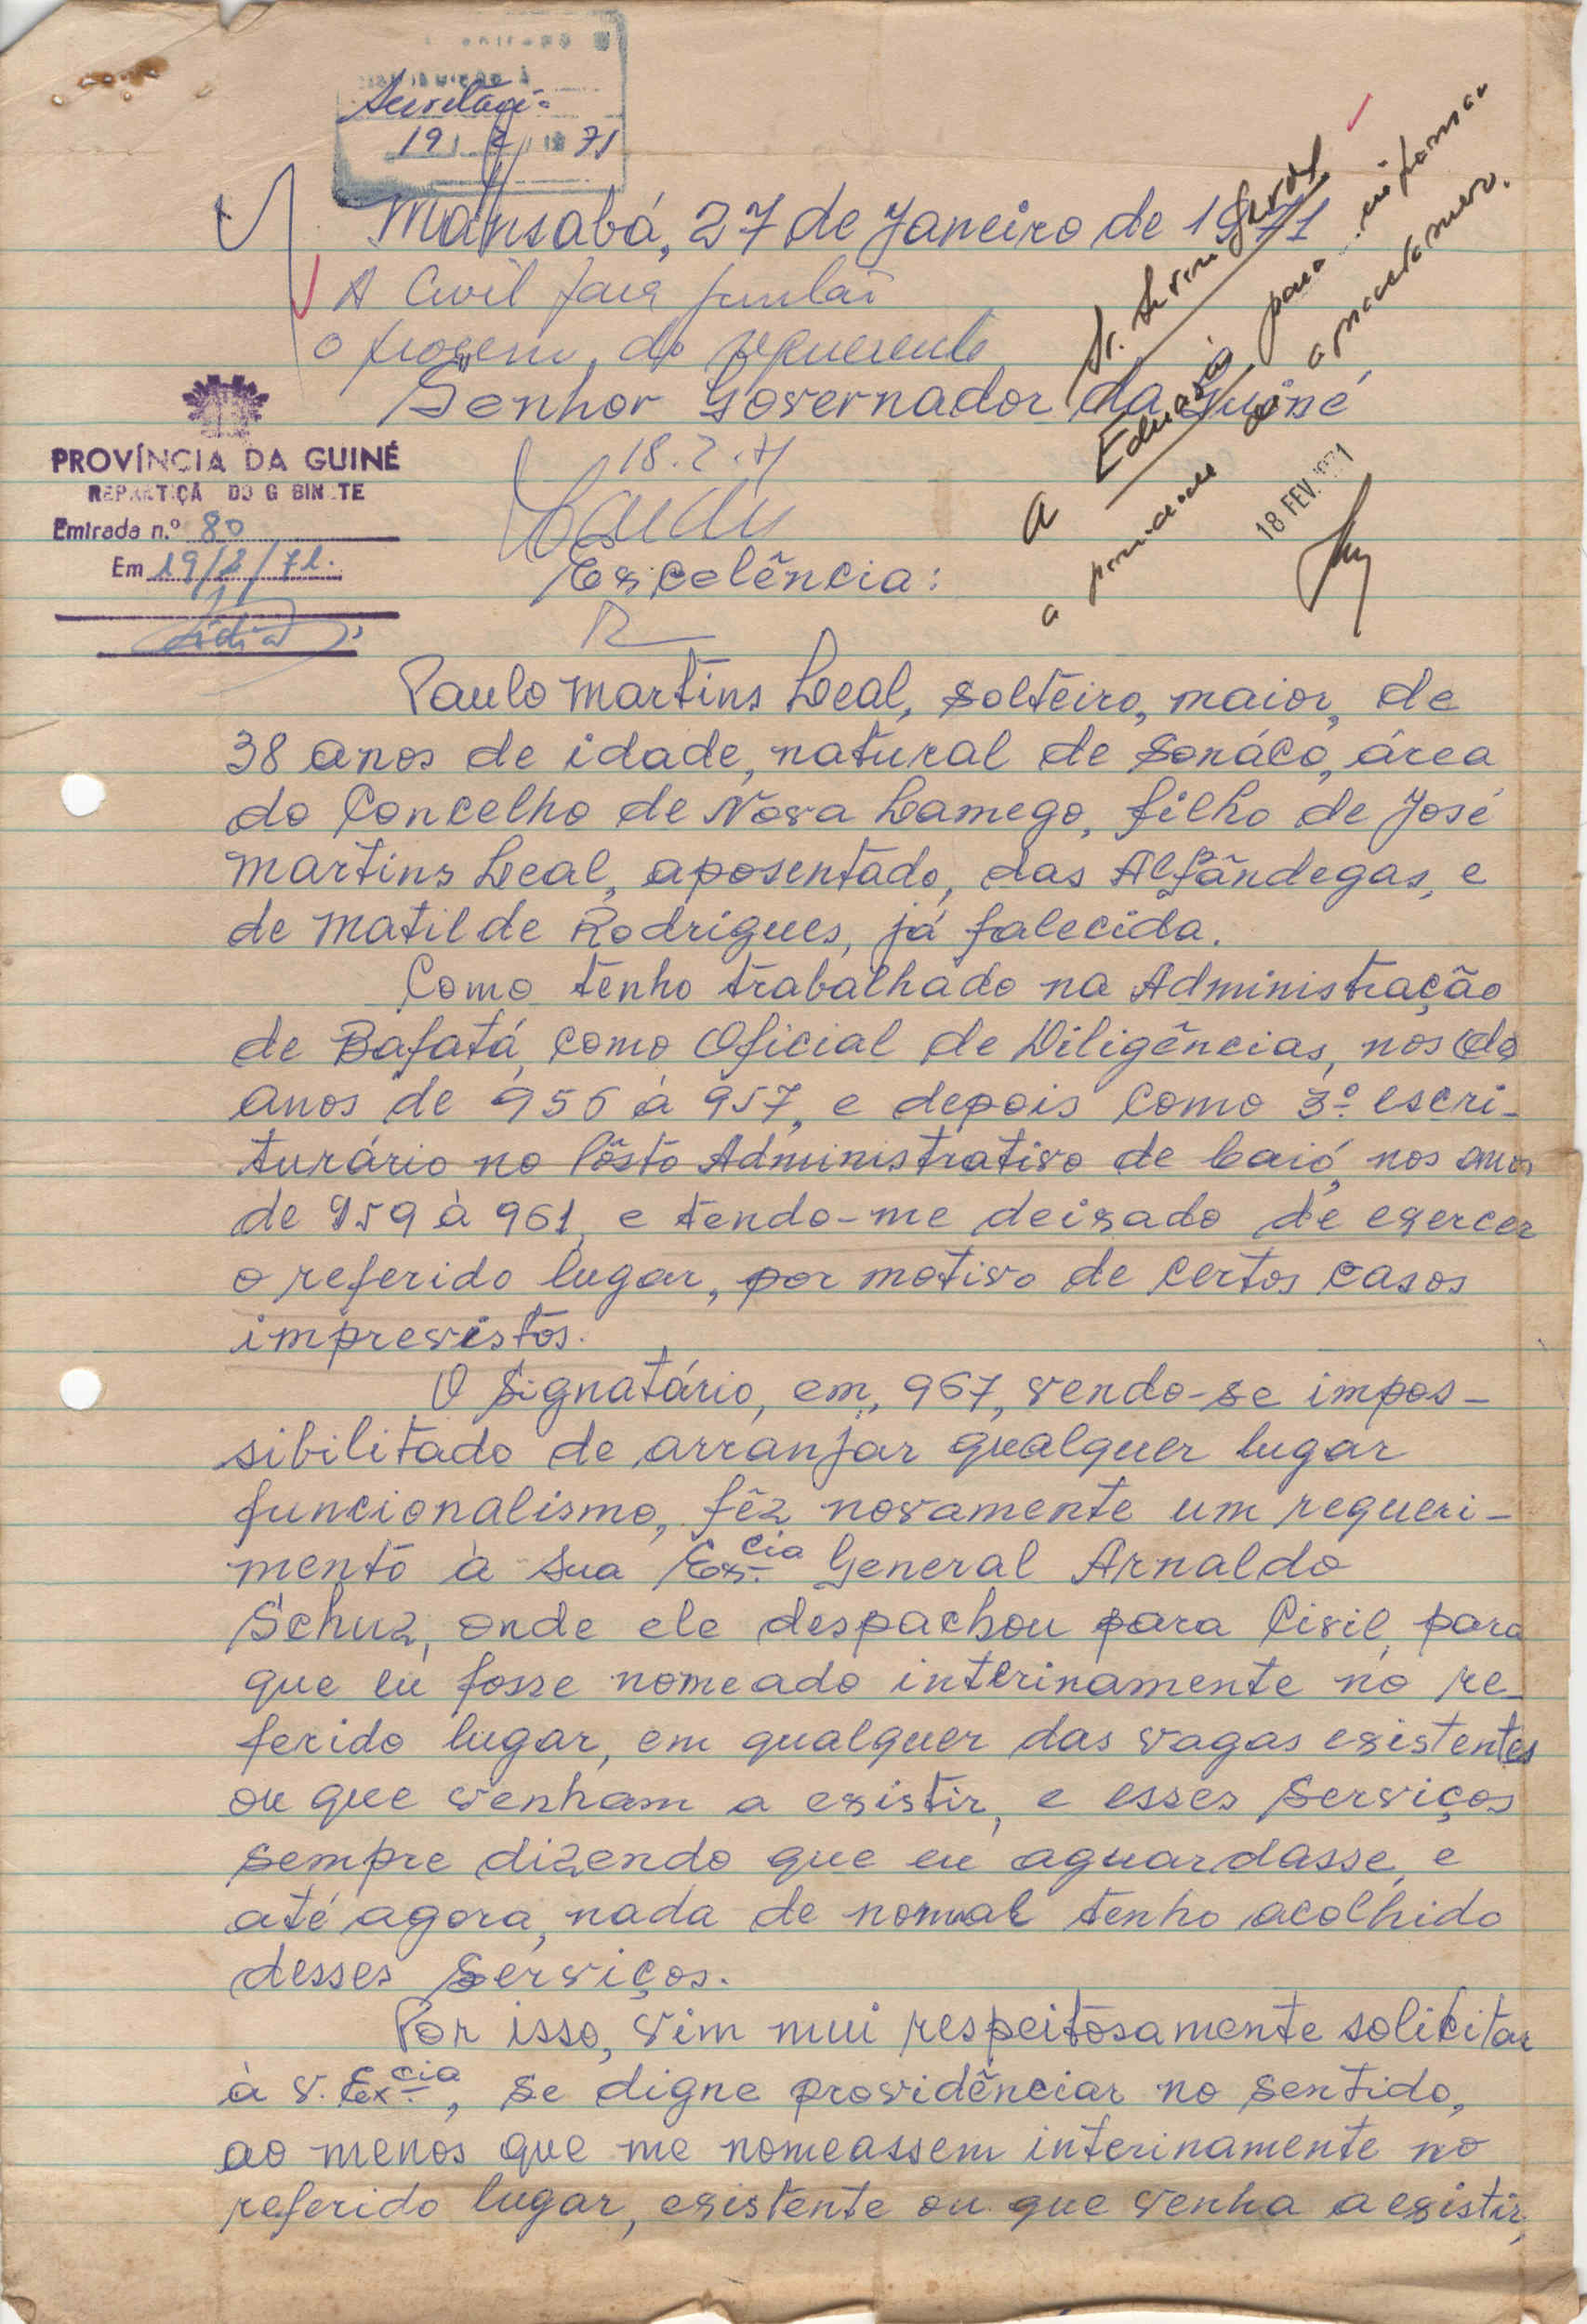 Secretari-
19 2 1971
Mansabá, 27 de Janeiro de 1971
A Civil para juntar
o do requerente
Senhor Governador da Guiné
18.2.71
PROVÍNCIA DA GUINÉ
REPARTIÇÃ DO G BIN TE
Entrada n.º 80
Em 19/2/71.
A Educação para
18 FEV. 1971
Escelência:
Paulo Martins Leal, solteiro, maior, de
38 anos de idade, natural de Sonáco, área
do Concelho de Nova Lamego, filho de José
Martins Leal, aposentado, das Alfândegas, e
de Matilde Rodrigues, já falecida.
Como tenho trabalhado na Administração
de Bafatá, como Oficial de Diligências, nos
anos de 956 à 957, e depois como 3º escri-
turário no Pôsto Administrativo de Caió, nos anos
de 959 à 961, e tendo-me deixado de exercer
o referido lugar, por motivo de certos casos
imprevistos.
O Signatário, em, 967, vendo-se impos-
sibilitado de arranjar qualquer lugar
funcionalismo, fêz novamente um requeri-
mento à Sua Ex.cia General Arnaldo
Schuz, onde ele despachou para Civil, para
que eu fosse nomeado interinamente no re-
ferido lugar, em qualquer das vagas existentes
ou que venham a existir, e esses Serviços
sempre dizendo que eu aguardasse, e
até agora, nada de normal tenho acolhido
desses Serviços.
Por isso, vim mui respeitosamente solicitar
à V. Ex.cia, se digne providênciar no sentido,
ao menos que me nomeassem interinamente no
referido lugar, existente ou que venha a existir,